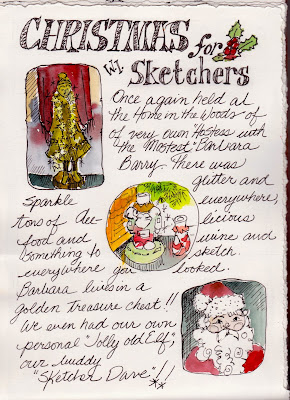 CHRISTMAS for
WI. Sketchers
Once again held at
the Home in the Woods of
of very own Hostess with
"the Mostest" Barbara
Barry. There was
Sparkle glitter and
tons of everywhere,
Dee- licious
food and wine and
something to sketch
everywhere you looked.
Barbara lives in a
golden treasure chest!!
We even had our own
personal "Jolly old Elf",
our buddy
"Sketcher Dave"!!